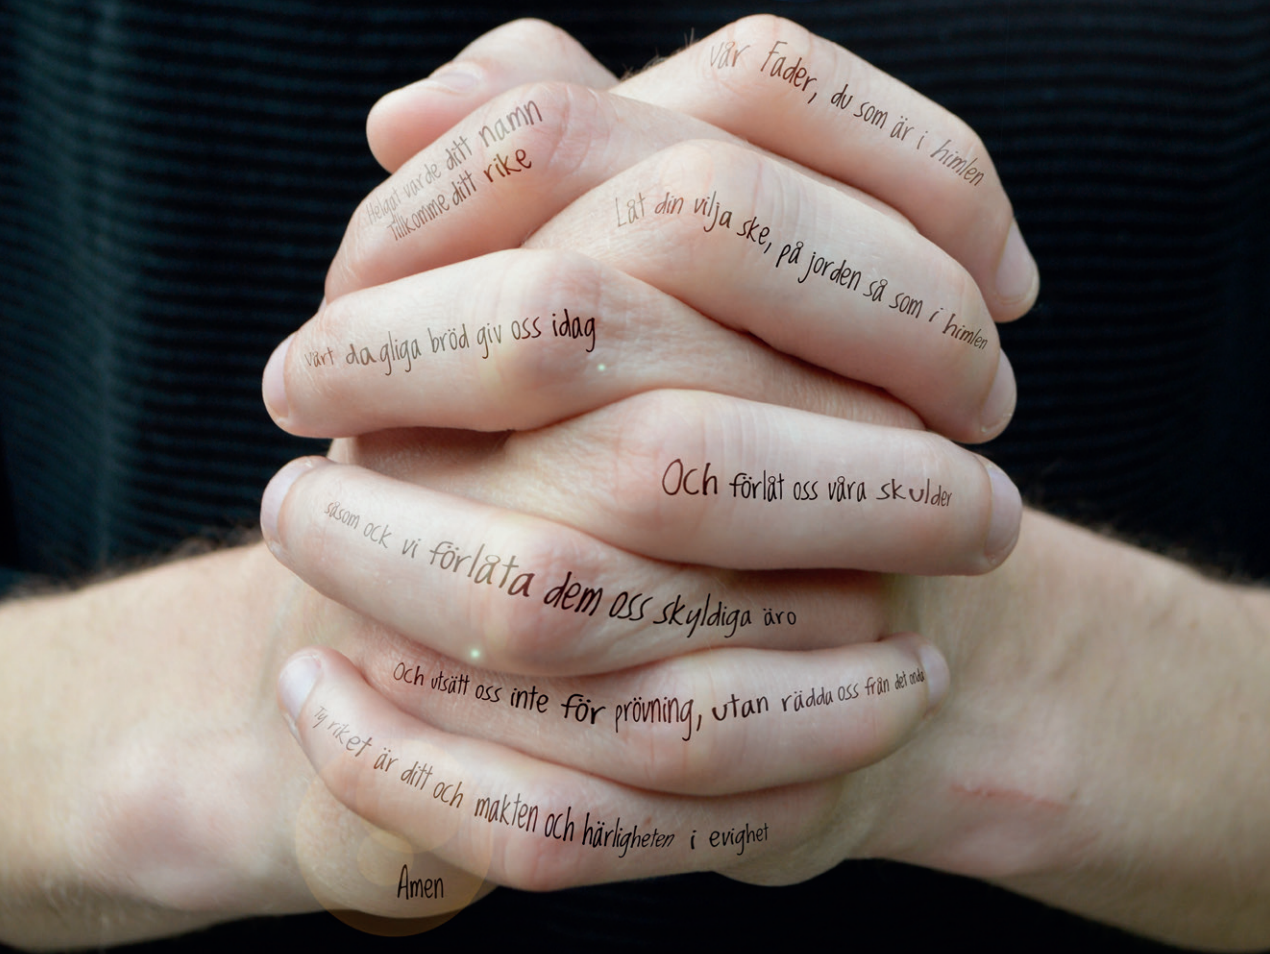 Vår Fader, du som är i himlen
Helgat varde ditt namn
Tillkomme ditt rike
Låt din vilja ske, på jorden så som i himlen
Vårt dagliga bröd giv oss idag
Och förlåt oss våra skulder
såsom ock vi förlåta dem oss skyldiga äro
Och utsätt oss inte för prövning, utan rädda oss från det onda
Ty riket är ditt och makten och härligheten i evighet
Amen